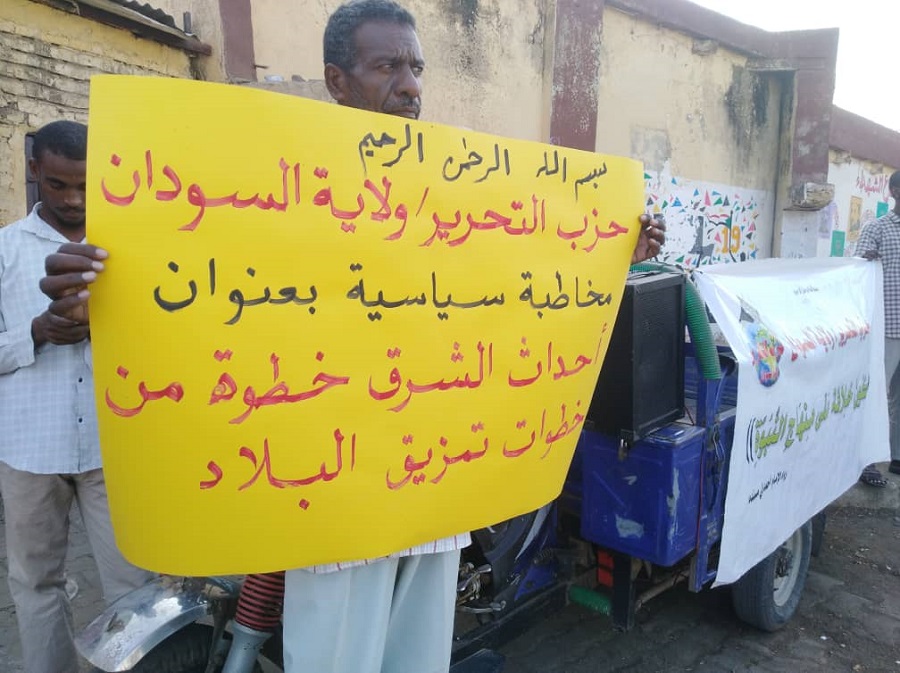 بسم الله الرحمن الرحيم
حزب التحرير/ولاية السودان
مخاطبة سياسية بعنوان
أحداث الشرق خطوة من
خطوات تمزيق البلاد
خلافة على منهاج النبوة))
19